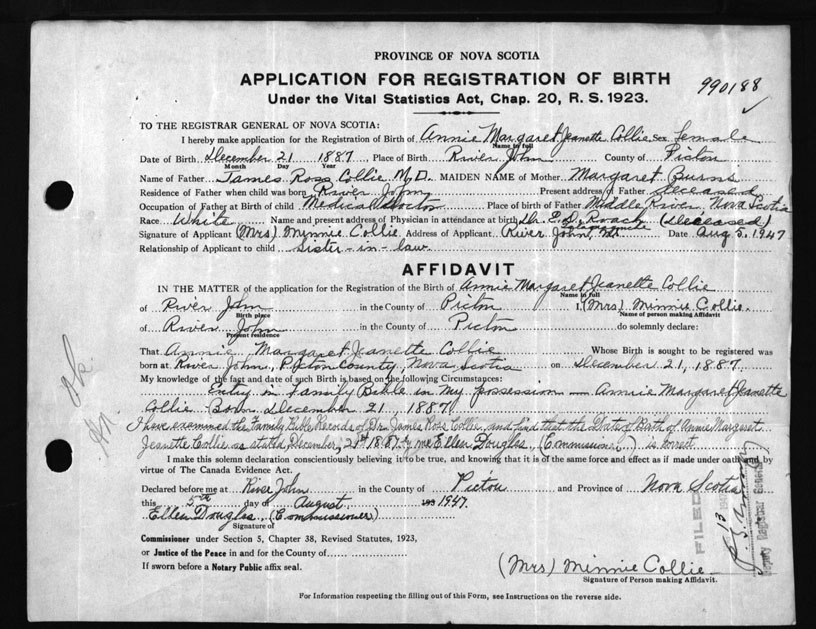 PROVINCE OF NOVA SCOTIA
APPLICATION FOR REGISTRATION OF BIRTH
990188
Under the Vital Statistics Act, Chap. 20, R. S. 1923.
TO THE REGISTRAR GENERAL OF NOVA SCOTIA:
I hereby make application for the Registration of Birth of Annie Margaret Jeanette Collie Sex Female
Name in full
Date of Birth December 21 1887 Place of Birth River John County of Pictou
Month Day Year
Name of Father James Ross Collie M.D. MAIDEN NAME of Mother Margaret Burns
Residence of Father when child was born River John Present address of Father deceased
Occupation of Father at Birth of child Medical Doctor Place of birth of Father Middle River, Nova Scotia
Race White Name and present address of Physician in attendance at birth Dr. E. D. Roach (deceased)
Tatamagouche
Signature of Applicant (Mrs) Minnie Collie Address of Applicant River John, NS Date Aug 5, 1947
Relationship of Applicant to child Sister-in-law
AFFIDAVIT
IN THE MATTER of the application for the Registration of the Birth of Annie Margaret Jeanette Collie
Name in full
of River John in the County of Pictou I, (Mrs) Minnie Collie
Birth place Name of person making Affidavit
of River John in the County of Pictou do solemnly declare:
Present residence
That Annie Margaret Jeanette Collie Whose Birth is sought to be registered was
born at River John, Pictou County, Nova Scotia on December 21, 1887.
My knowledge of the fact and date of such Birth is based on the following Circumstances:
Entry in Family Bible in my possession — Annie Margaret Jeanette
Collie Born December 21, 1887
I have examined the Family Bible Records of Dr. James Ross Collie, and find that the Date of Birth of Annie Margaret
Jeanette Collie as stated December, 21st 1887 by me Ellen Douglas, (Commissioner) is correct
I make this solemn declaration conscientiously believing it to be true, and knowing that it is of the same force and effect as if made under oath and by
virtue of The Canada Evidence Act.
Declared before me at River John in the County of Pictou and Province of Nova Scotia
this 5th day of August 193 1947.
Ellen Douglas, (Commissioner)
Signature of
Commissioner under Section 5, Chapter 38, Revised Statutes, 1923,
or Justice of the Peace in and for the County of
If sworn before a Notary Public affix seal.
(Mrs) Minnie Collie
Signature of Person making Affidavit.
For Information respecting the filling out of this Form, see Instructions on the reverse side.
ok.
FILED
Deputy Registrar General